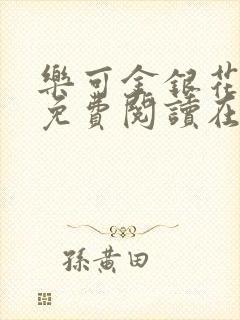 樂可金銀花
免費閱讀在
孫黃田